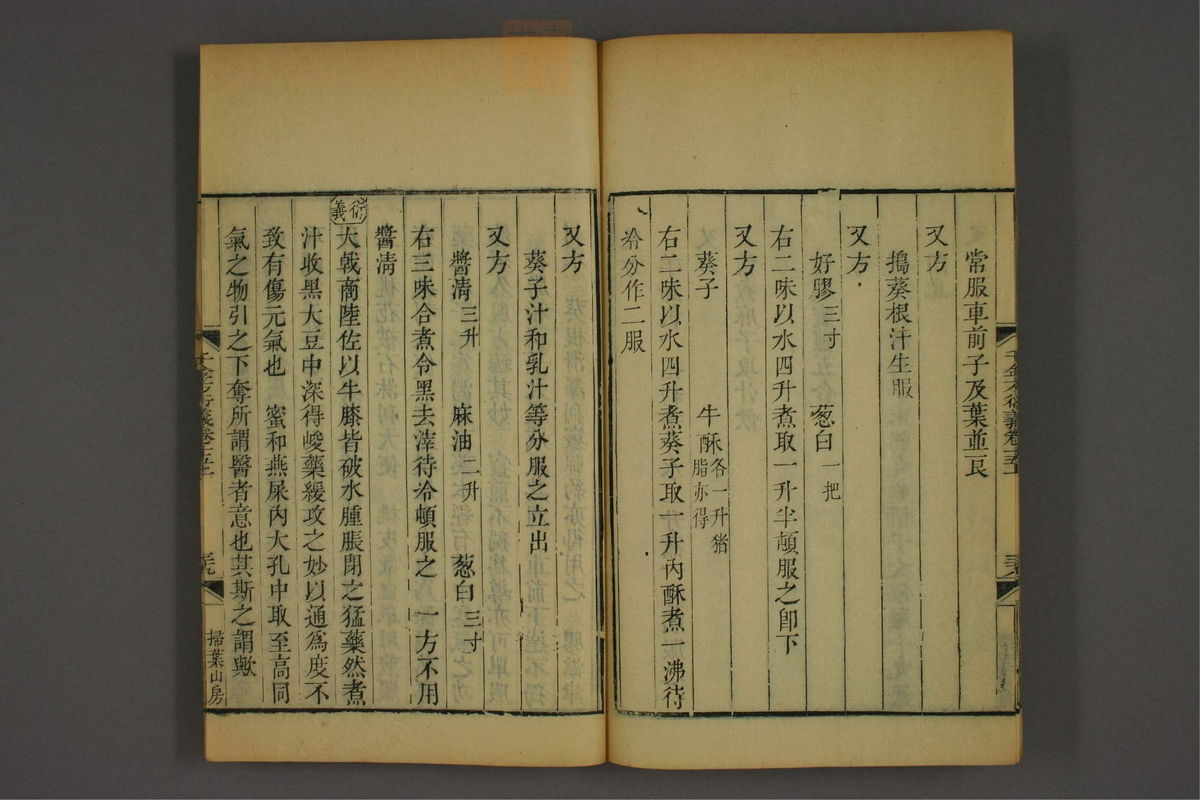 常服車前子及葉並良
又方
搗葵根汁生服
又方
好膠三寸　葱白一把
右二味以水四升煮取一升半頓服之卽下
又方
葵子　牛酥各一升猪脂亦得
右二味以水四升煮葵子取一升內酥煮一沸待
冷分作二服
又方
葵子汁和乳汁等分服之立出
又方
醬淸三升　麻油二升　葱白三寸
右三味合煮令黑去滓待冷頓服之　一方不用
醬淸
衍義
大戟商陸佐以牛膝皆破水腫脹閉之猛藥然煮
汁收黑大豆中深得峻藥緩攻之妙以通爲度不
致有傷元氣也　蜜和燕屎內大孔中取至高同
氣之物引之下奪所謂醫者意也其斯之謂歟
千金方衍義卷十五上
掃葉山房